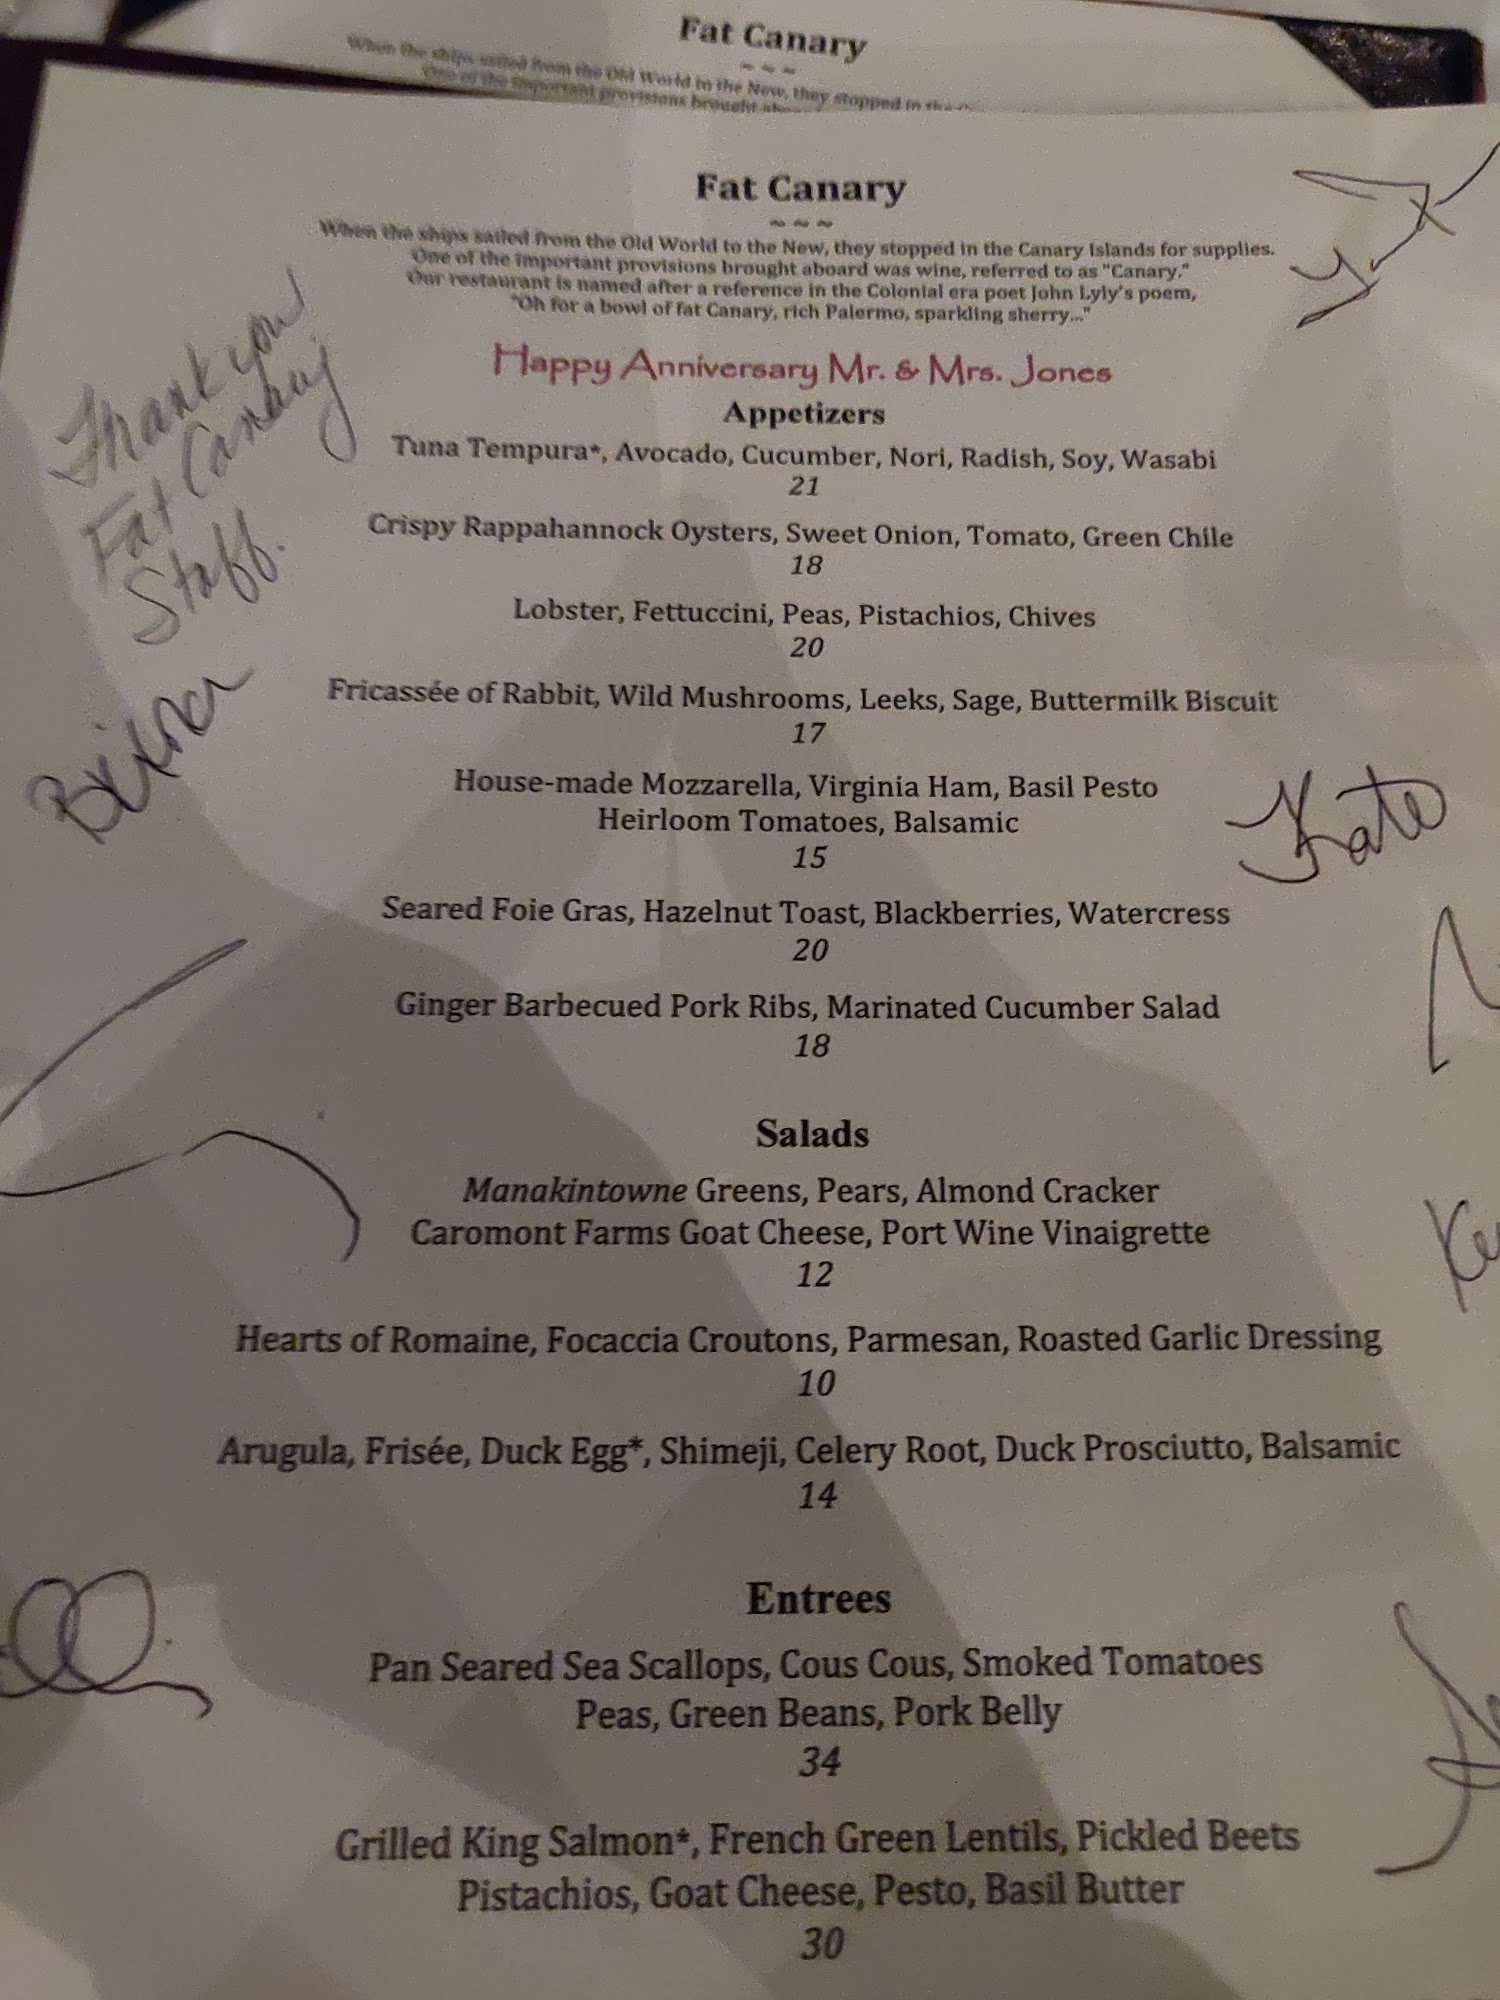 Fat Canary
~ ~ ~
When the ships sailed from the Old World to the New, they stopped in the
One of the important provisions brought
Fat Canary
~ ~ ~
When the ships sailed from the Old World to the New, they stopped in the Canary Islands for supplies.
One of the important provisions brought aboard was wine, referred to as "Canary."
Our restaurant is named after a reference in the Colonial era poet John Lyly's poem,
"Oh for a bowl of fat Canary, rich Palermo, sparkling sherry..."
Happy Anniversary Mr. & Mrs. Jones
Thank you
Fat Canary
Staff.
Appetizers
Tuna Tempura*, Avocado, Cucumber, Nori, Radish, Soy, Wasabi
21
Crispy Rappahannock Oysters, Sweet Onion, Tomato, Green Chile
18
Lobster, Fettuccini, Peas, Pistachios, Chives
20
Fricassée of Rabbit, Wild Mushrooms, Leeks, Sage, Buttermilk Biscuit
17
House-made Mozzarella, Virginia Ham, Basil Pesto
Heirloom Tomatoes, Balsamic
15
Kate
Seared Foie Gras, Hazelnut Toast, Blackberries, Watercress
20
Ginger Barbecued Pork Ribs, Marinated Cucumber Salad
18
Salads
Manakintowne Greens, Pears, Almond Cracker
Caromont Farms Goat Cheese, Port Wine Vinaigrette
12
Hearts of Romaine, Focaccia Croutons, Parmesan, Roasted Garlic Dressing
10
Arugula, Frisée, Duck Egg*, Shimeji, Celery Root, Duck Prosciutto, Balsamic
14
Entrees
Pan Seared Sea Scallops, Cous Cous, Smoked Tomatoes
Peas, Green Beans, Pork Belly
34
Grilled King Salmon*, French Green Lentils, Pickled Beets
Pistachios, Goat Cheese, Pesto, Basil Butter
30